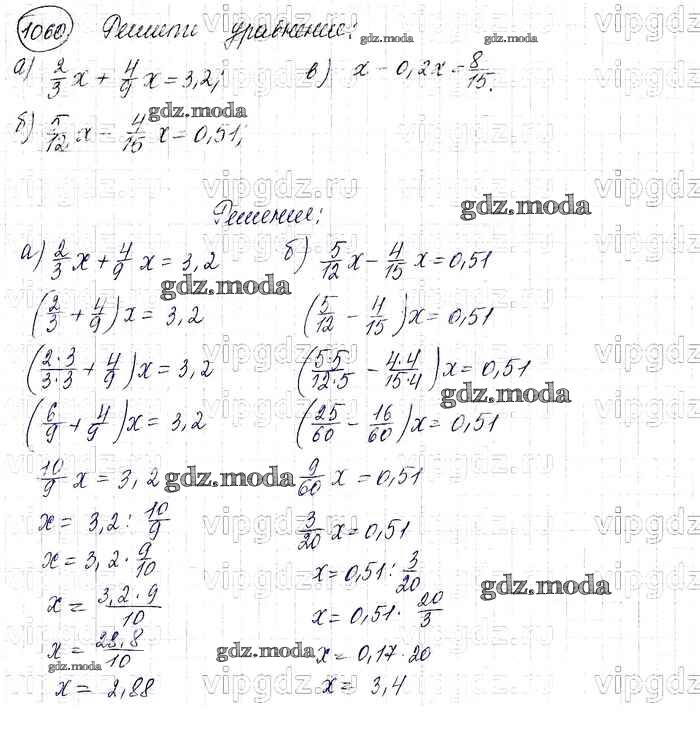 1060. Решите уравнение:
а) 2/3 x + 4/9 x = 3,2; в) x - 0,2x = 8/15.
б) 5/12 x - 4/15 x = 0,51;
Решение:
а) 2/3 x + 4/9 x = 3,2
(2/3 + 4/9) x = 3,2
(2·3/3·3 + 4/9) x = 3,2
(6/9 + 4/9) x = 3,2
10/9 x = 3,2
x = 3,2 : 10/9
x = 3,2 · 9/10
x = 3,2·9/10
x = 28,8/10
x = 2,88
б) 5/12 x - 4/15 x = 0,51
(5/12 - 4/15) x = 0,51
(5·5/12·5 - 4·4/15·4) x = 0,51
(25/60 - 16/60) x = 0,51
9/60 x = 0,51
3/20 x = 0,51
x = 0,51 : 3/20
x = 0,51 · 20/3
x = 0,17·20
x = 3,4
gdz.moda
vipgdz.ru